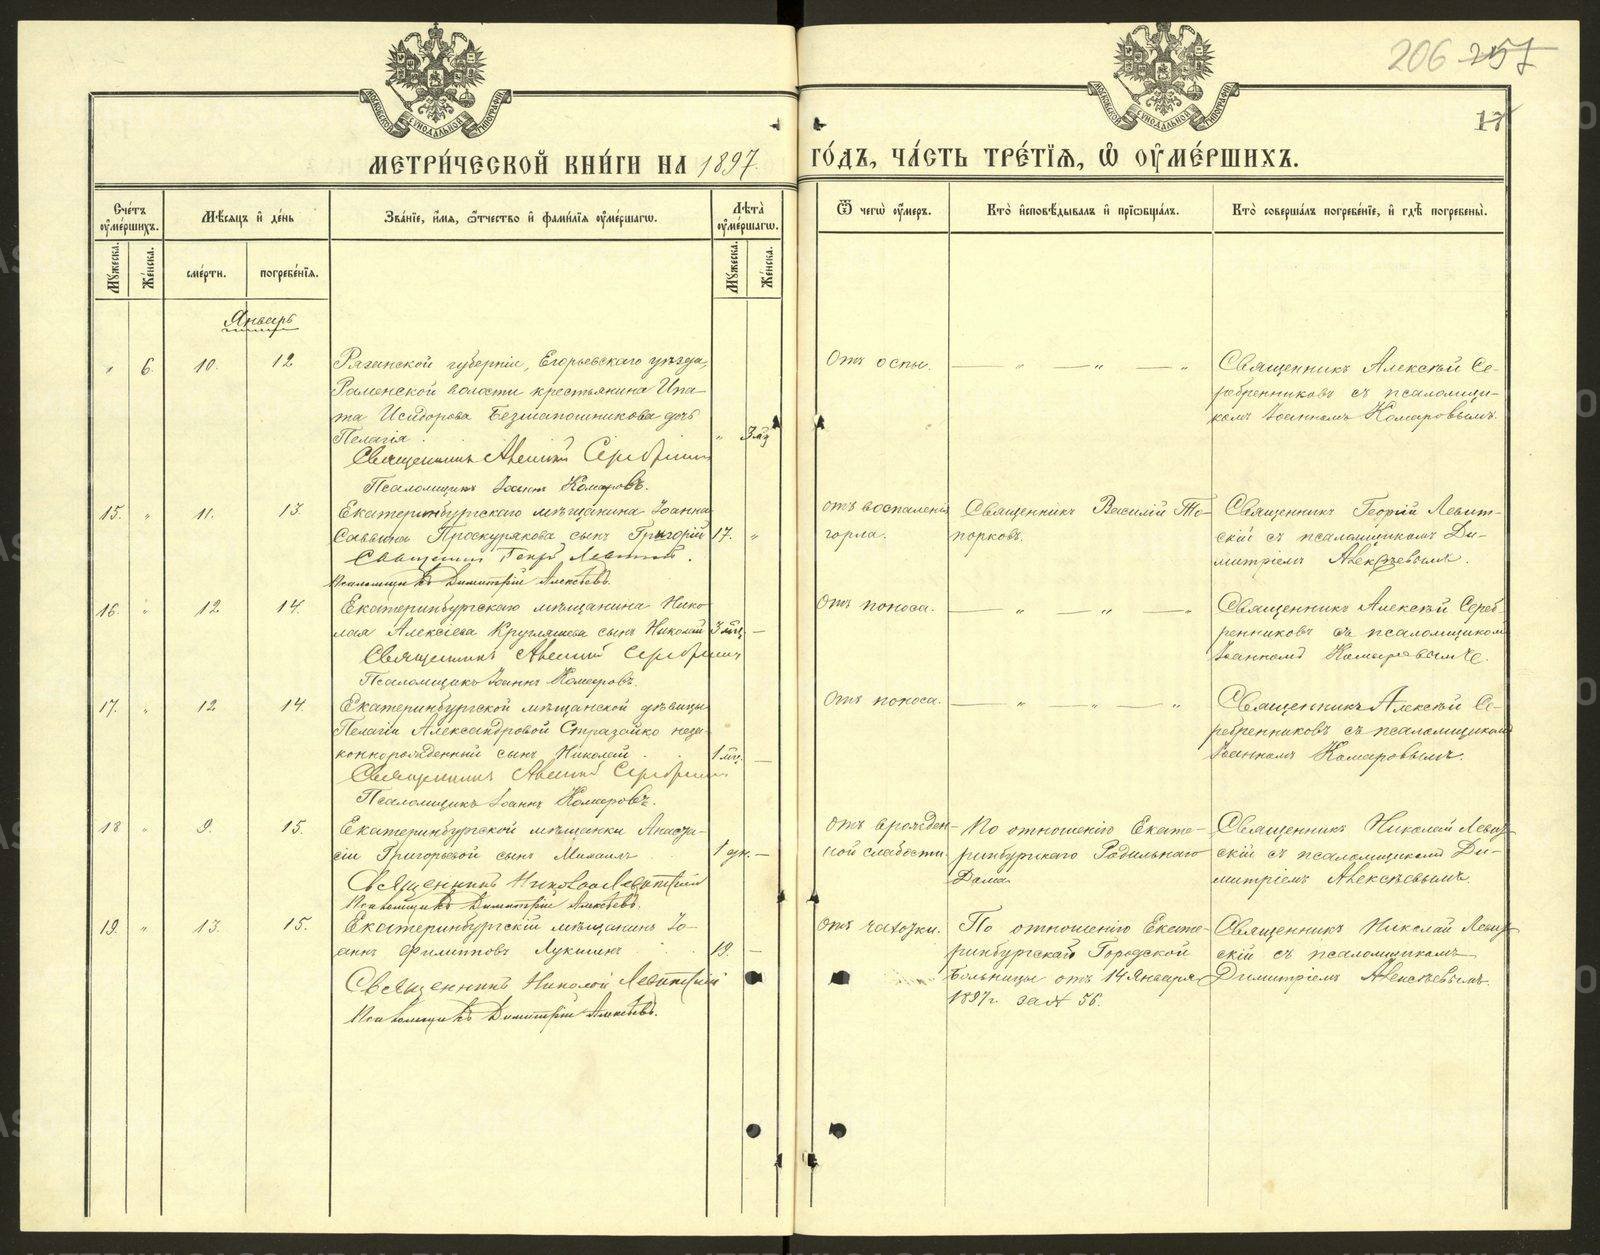 206 257
17
МЕТРИ́ЧЕСКОЙ КНИ́ГИ НА 1897.
ГО́ДЪ, ЧА́СТЬ ТРЕ́ТІѦ, Ѽ ОУ҆МЕ́РШИХЪ.
Сче́тъ оу҆ме́ршихъ.
Мѣ́сяцъ и де́нь
Зва́ніе, и҆́мя, ѻ҆́тчество и҆ фами́лія оу҆ме́ршагѡ.
Лѣта̀ оу҆ме́ршагѡ.
Ѿ чегѡ̀ оу҆́меръ.
Кто̀ и҆сповѣ́дывалъ и҆ прїѡбща́лъ.
Кто̀ соверша́лъ погребе́ніе, и҆ гдѣ̀ погребены̀.
Му́жеска.
Же́нска.
сме́рти.
погребе́нія.
Му́жеска.
Же́нска.
Январь
" 6. 10. 12.
Рязанской губерніи, Егорьевскаго уѣзда,
Раменской волости крестьянина Ипа-
та Исидорова Безшапошникова дочь
Пелагія. " 3 мц
Священникъ Алексій Серебренник
Псаломщикъ Іоаннъ Комаровъ.
Отъ оспы.
— " — " — "
Священникъ Алексѣй Се-
ребренниковъ съ псаломщи-
комъ Іоанномъ Комаровымъ.
15. " 11. 13.
Екатеринбургскаго мѣщанина Іоанна
Саввина Проскурякова сынъ Григорій 17. "
Священник Георг Левитск.
Псаломщикъ Димитрій Алексѣевъ.
отъ воспаленія
горла.
Священникъ Василій То-
порковъ.
Священникъ Георгій Левит-
скій съ псаломщикомъ Ди-
митріемъ Алексѣевымъ.
16. " 12. 14.
Екатеринбургскаго мѣщанина Нико-
лая Алексіева Кругляшева сынъ Николай 3 мц. —
Священникъ Алексій Серебренник
Псаломщикъ Іоаннъ Комаровъ.
Отъ поноса.
— " — " — "
Священникъ Алексѣй Сереб-
ренниковъ съ псаломщикомъ
Іоанномъ Комаровымъ.
17. " 12 14.
Екатеринбургской мѣщанской дѣвицы
Пелагіи Александровой Стразайко неза-
коннорожденный сынъ Николай. 1 мц. —
Священникъ Алексій Серебренник
Псаломщикъ Іоаннъ Комаровъ.
Отъ поноса.
— " " — "
Священникъ Алексѣй Се-
ребренниковъ съ псаломщикомъ
Іоанномъ Комаровымъ.
18 " 9. 15.
Екатеринбургской мѣщанки Анаста-
сіи Григорьевой сынъ Михаилъ 1 дн. —
Священникъ Николай Левитскій
Псаломщикъ Димитрій Алексѣевъ.
отъ врожден-
ной слабости.
По отношенію Екате-
ринбургскаго Родильнаго
Дома.
Священникъ Николай Левит-
скій съ псаломщикомъ Ди-
митріемъ Алексѣевымъ.
19. " 13. 15.
Екатеринбургскій мѣщанинъ Іо-
аннъ Филипповъ Лукинъ 19. —
Священникъ Николай Левитскій
Псаломщикъ Димитрій Алексѣевъ.
отъ чахотки.
По отношенію Екате-
ринбургской Городской
Больницы отъ 14 Января
1897 г. за № 56.
Священникъ Николай Левит-
скій съ псаломщикомъ
Димитріемъ Алексѣевымъ.